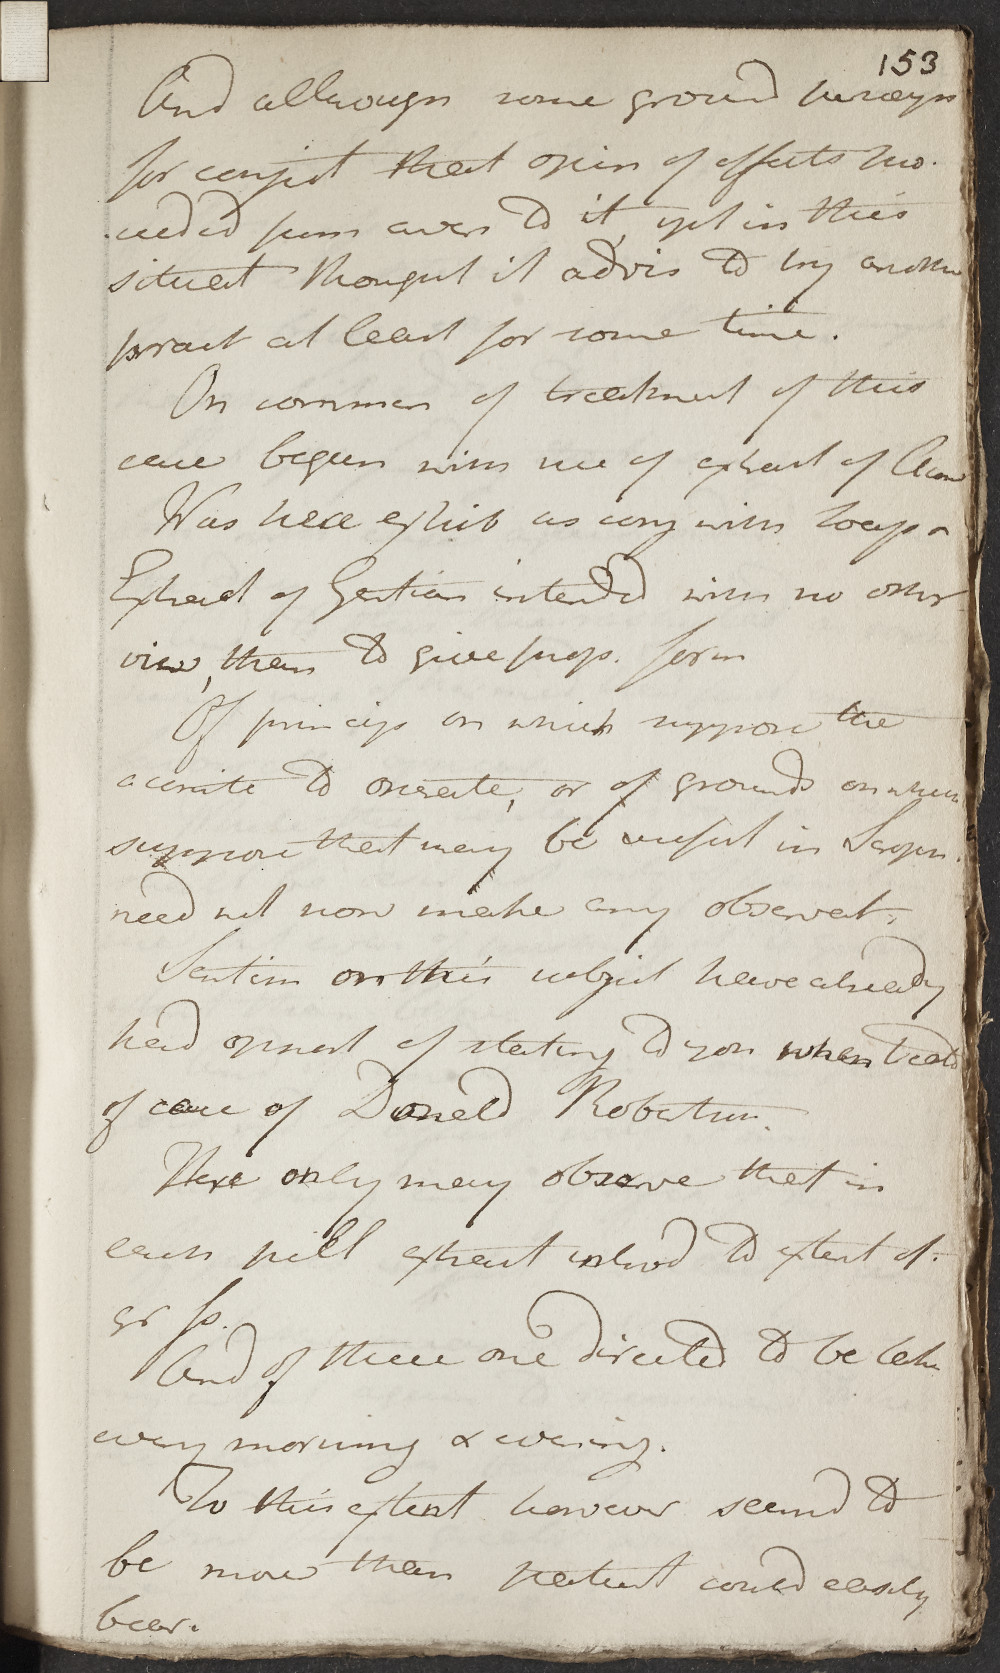 153
And although some ground perhaps
for conject that origin of effects
ceeded from aver to it, yet in this
situat thought it advis to try another
pract at least for some time.
On commen of treatment of this
case begun with use of extract of Acon
Was here exhib as conj with soap &
Extract of Gentian intended with no other
view, than to give prop. form
Of princip on which suppose the
aconite to operate, or of grounds on which
suppose that may be useful in
need not now make any observat.
Sentim on this subject have already
had opport of stating to you when treated
of case of Donald Robertson.
Here only may observe that in
each pill extract introd to extent of.
gr ſs.
And of these one directed to be take
every morning & evening.
To this extent however seemd to
be more than patient could easily
bear.